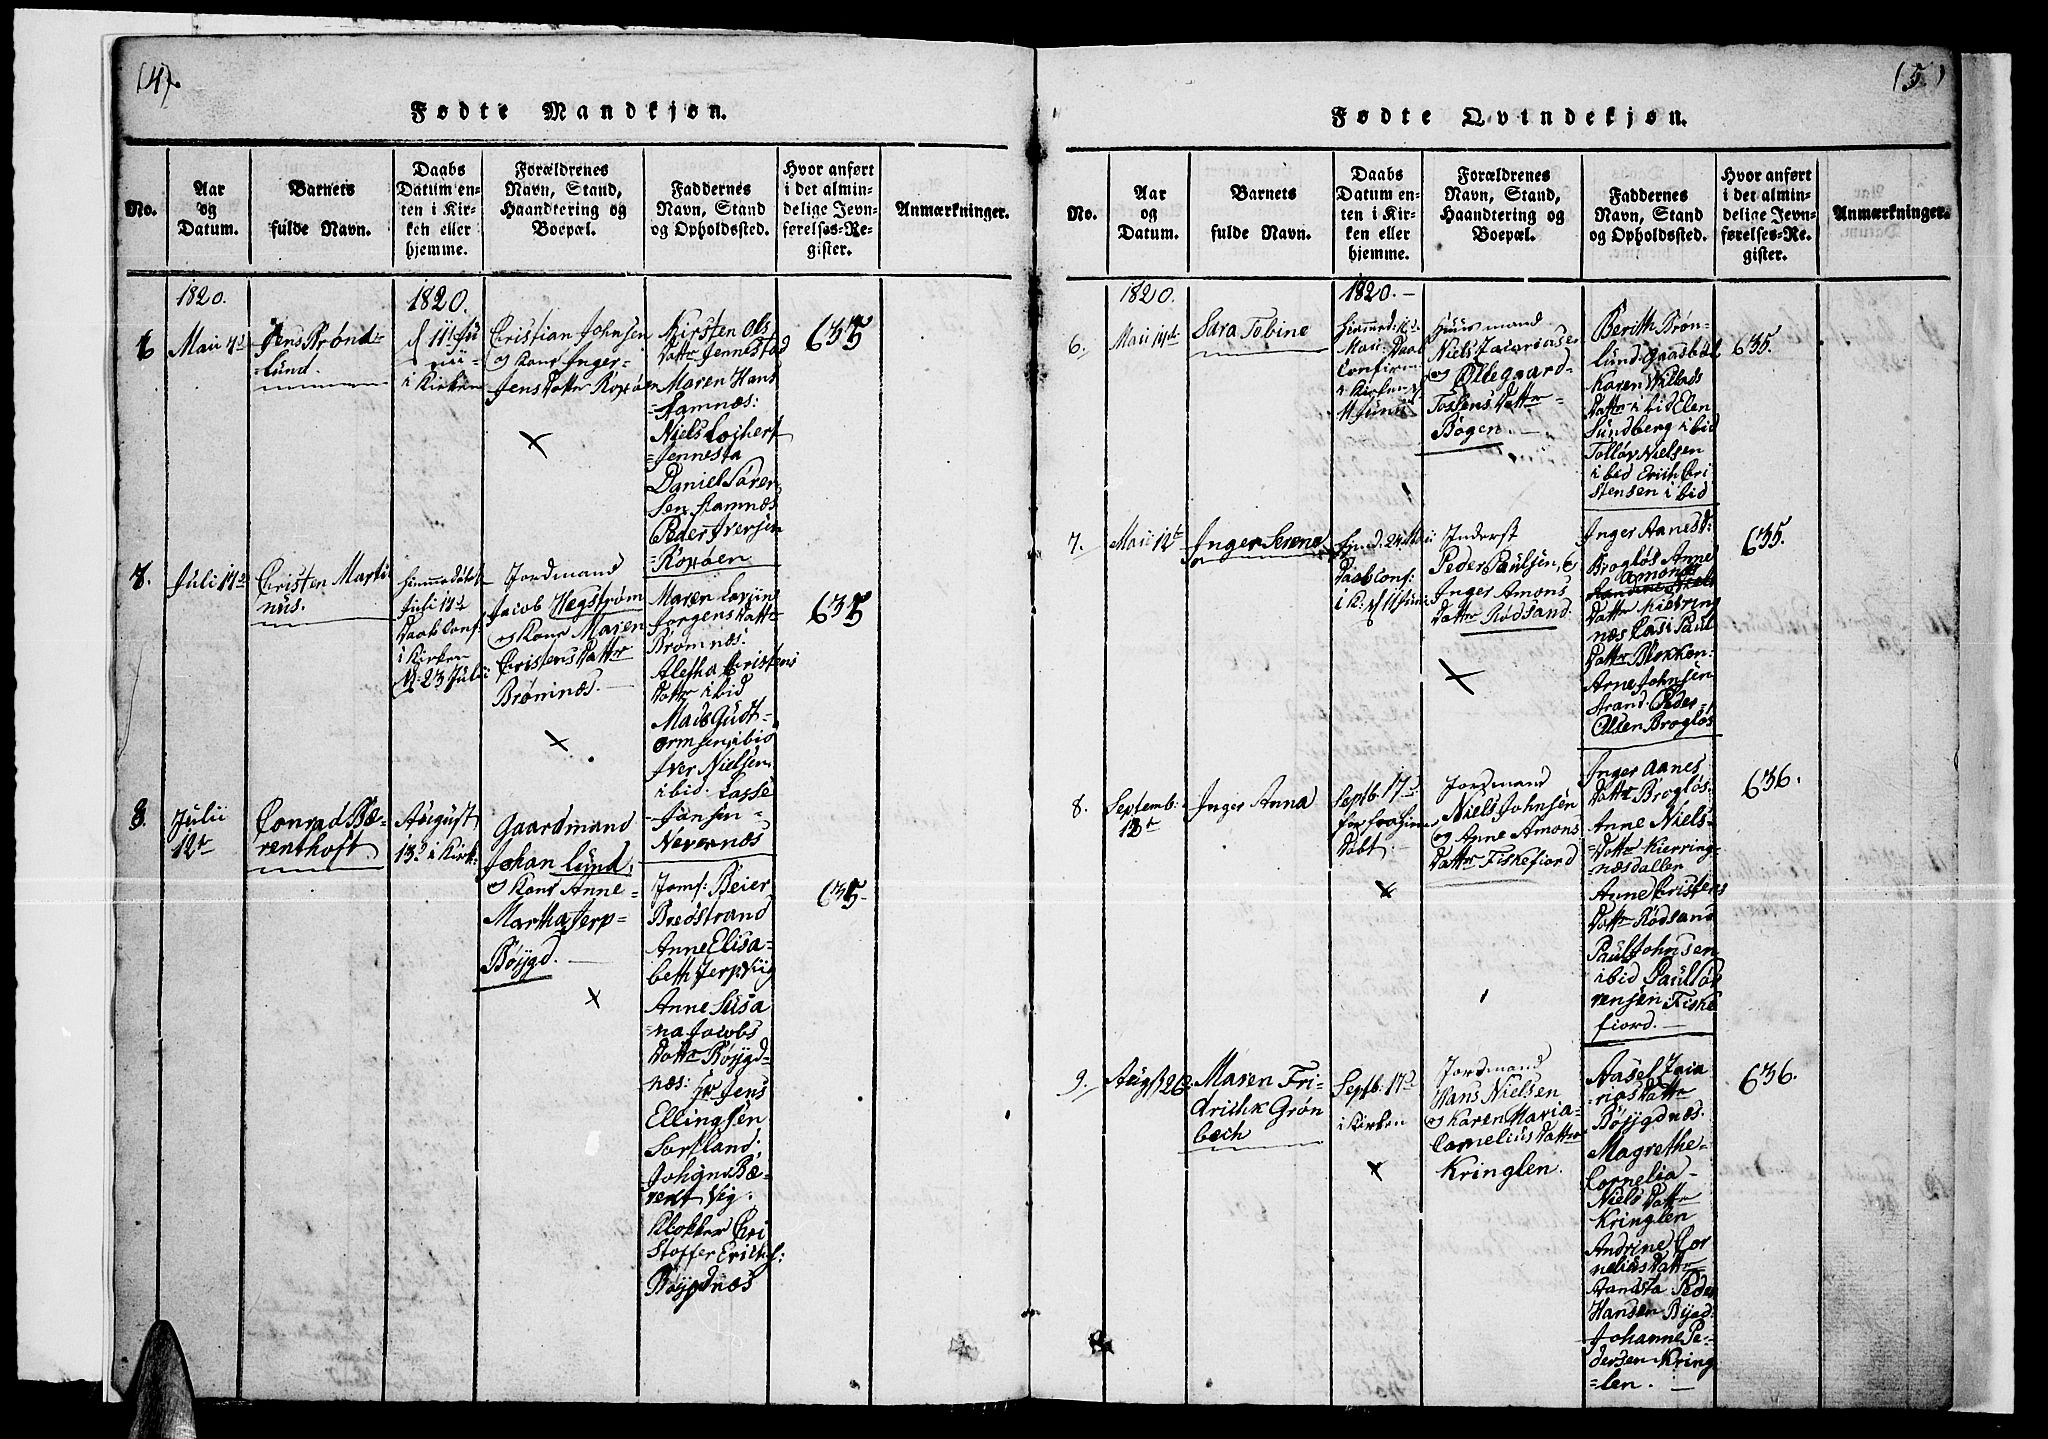 (4).
Fødte Mandkjøn.
No.
Aar
og
Datum.
Barnets
fulde Navn.
Daabs
Datum en-
ten i Kir-
ken eller
hjemme.
Forældrenes
Navn, Stand,
Haandtering og
Boepæl.
Faddernes
Navn, Stand
og Opholdssted.
Hvor anført
i det almin-
delige Jevn-
førelses-Re-
gister.
Anmærkninger.
1820.
6
Maii
Jens Brønd-
lund.
1820.
i Kirken
Christian Johnsen
og Kone Inger
Jens Datter Roxøen
Kirsten Ols
Datter Jennestad
Maren Hans
Hamnæs:
Niels Lojhert
Jennesta
Daniel Søren
sen Hamnæs
Peder Iversen
Roxøen
635
7.
Juli
Christen Marti
nus.
Juli
Daab Conf:
i Kirken
23 Julii
Jordmand
Jacob Hegstrøm
og Kone Maren
Christens Datter
Brømnæs.
Maren
Jørgens Datter
Brømnæs:
Aletha Christens
Datter ibid
Mads Gudt-
ormsen ibid
Iver Nielsen
ibid. Lasse
Jansen
Nevernæs
635
8.
Julii
12te
Conrad Bæ-
renthoft
August
13d i Kirk:
Gaardmand
Johan Lund,
og Kone Anne
Martha Jerp-
Bøygd.
Jomf: Beier
Bredstrand
Anne Elisa-
beth Jerp Viig
Anne Susa
na Jacobs
Datter Bøygd-
næs: Hr Jens
Ellingsen
Sortland;
Johan Bæ-
rent Vig.
Klokker Chri
stoffer Erichs:
Bøygdnæs
635.
(5)
Fødte Qvindekjøn.
No.
Aar
og
Datum.
Barnets
fulde Navn.
Daabs
Datum en-
ten i Kir-
ken eller
hjemme.
Forældrenes
Navn, Stand,
Haandtering og
Boepæl.
Faddernes
Navn, Stand
og Opholdssted.
Hvor anført
i det almin-
delige Jevn-
førelses-Re-
gister.
Anmærkninger.
1820.
6.
Maii
Sara Tobine
1820.
Maii Daab
Confirm
i Kirken
11 Junii
Huusmand
Niels Zacariasen
og Øllegaard
Tostens Datter
Bogen.
Berith Brøn-
lund Gaasbøl
Karen Willads
Datter ibid Elen
Sundberg ibid
Tolløv Nielsen
ibid Erich Cri
stensen ibid
635.
7.
Maii 12te
Inger Serene
Daab Conf:
i K: d 11 Junii
Inderst
Peder Paulsen, og
Inger Amons
Datter Rødsand.
Inger Aanesd:
Brogløs Anne
Amonds
Datter Kierring
næs Pauls
Datter Blokken:
Arne Johnsen
Strand. Peder
Olsen Brogløs
635.
8.
Septemb:
Inger Anna
Septb. 17d
Døbt.
Jordmand
Niels Johnsen
og Anne Amons
Datter Fiskefiord
Inger Aanes
Datter Brogløs:
Anne Niels-
Datter Kierring-
næsdallen
Anne Cristens
Datter Rødsand
Paul Johnsen
ibid Paul Sør
rensen Fiske
fiord.
636.
9.
Augs 26
Maren Fri-
drichk Grøn
bech
Septb: 17d
i Kirken
Jordmand
Hans Nielsen
og Karen Maria
Cornelius Datter
Kringlen.
Aasel Zaca
rias Datter
Bøygdnæs.
Magrethe
Cornelia
Niels Datter
Kringlen
Andrine Cor
nelius Datter
Strandsta Peder
Hansen Bygd:
Johanne Pe-
dersen Kring
len.
636.